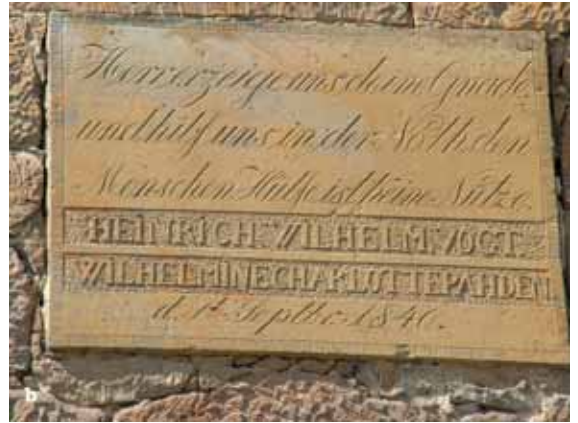 Herr erzeige uns dein Gnade
und hilf uns in der Noth, den
Menschen Hülfe ist keine Nütze.
HEINRICH WILHELM VOGT
WILHELMINE CHARLOTTE PAHDEN
d. 1t Septbr. 1840.
b